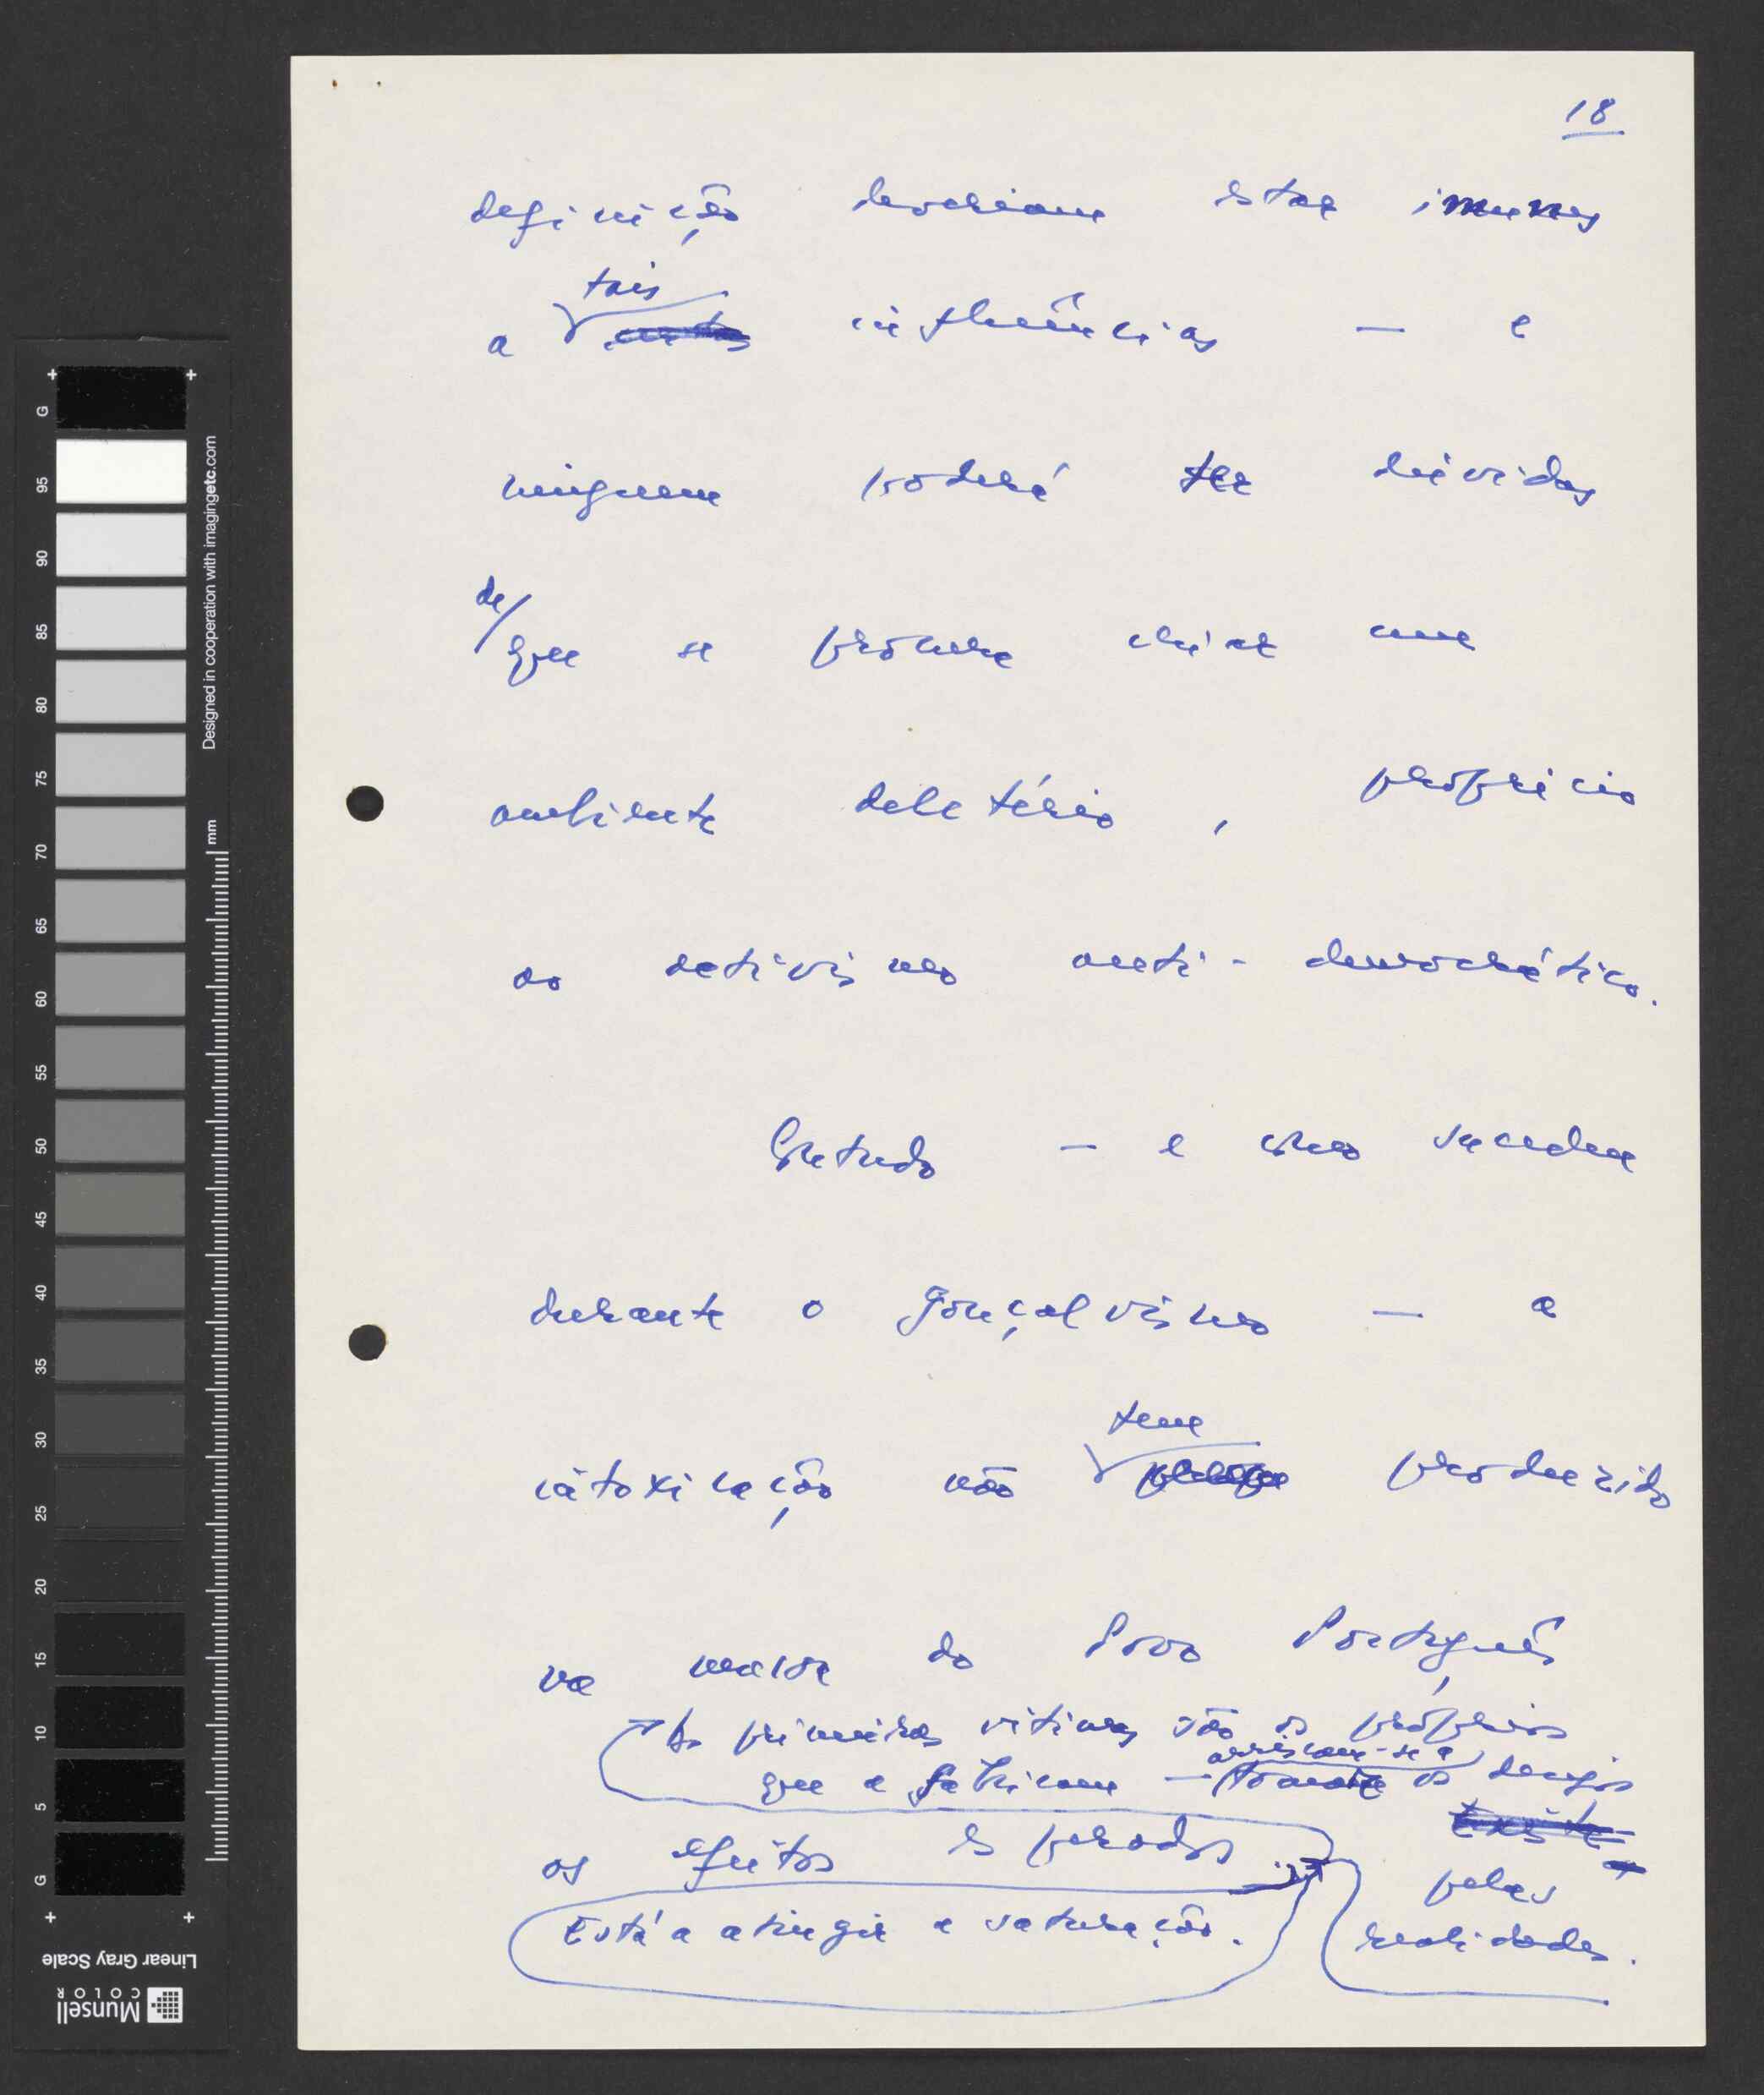 18
definição deveriam estar imunes
tais
a influências — e
ninguem poderá ter dúvidas
de/
que se procura criar um
ambiente deletério, propício
ao activismo anti-democrático.
Contudo — e como sucedeu
durante o gonçalvismo — a
tem
intoxicação não produzido
na massa do Povo Português
As primeiras vitimas são os próprios
arriscam-se a
que a fabricam — tomar os desejos
os efeitos esperados.
pelas
Está a atingir a saturação.
realidades.
G
95
90
85
80
75
70
65
60
55
50
45
40
35
30
25
20
15
10
5
G
mm
Designed in cooperation with imagingetc.com
Linear Gray Scale
Munsell
COLOR